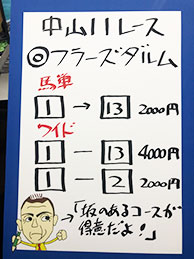 中山11レース
◎フラーズダルム
馬単
1 → 13 2000円
ワイド
1 ー 13 4000円
1 ー 2 2000円
「坂のあるコースが
得意だよ!」